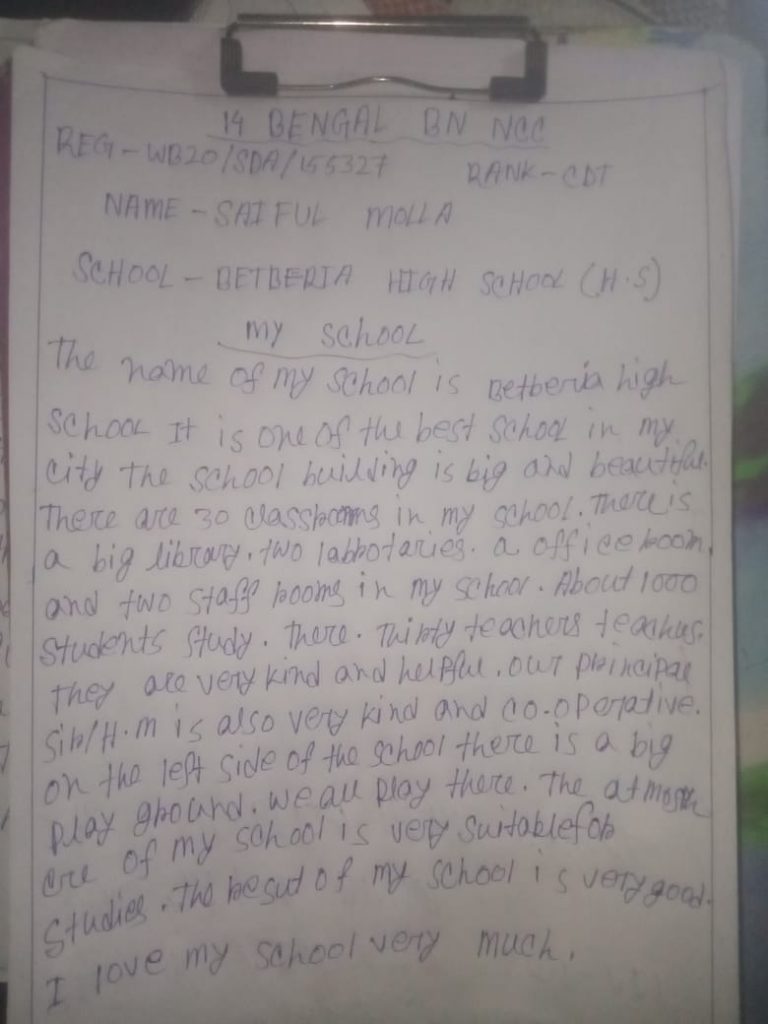 14 BENGAL BN NCC
REG-WB20/SDA/155327 RANK-CDT
NAME-SAIFUL MOLLA
SCHOOL-BETBERIA HIGH SCHOOL (H.S)
My School
The name of my school is Betberia high
school It is one of the best school in my
city The school building is big and beautiful.
There are 30 classrooms in my school. There is
a big library. two labbotaries. a office room,
and two staff rooms in my school. About 1000
students study. there. Thirty teachers teaches.
They are very kind and helpful. our principal
Sir/H.m is also very kind and co-operative.
on the left side of the school there is a big
play ground. we all play there. The atmosph
ere of my school is very suitable for
studies. The resut of my school is very good.
I love my school very much.